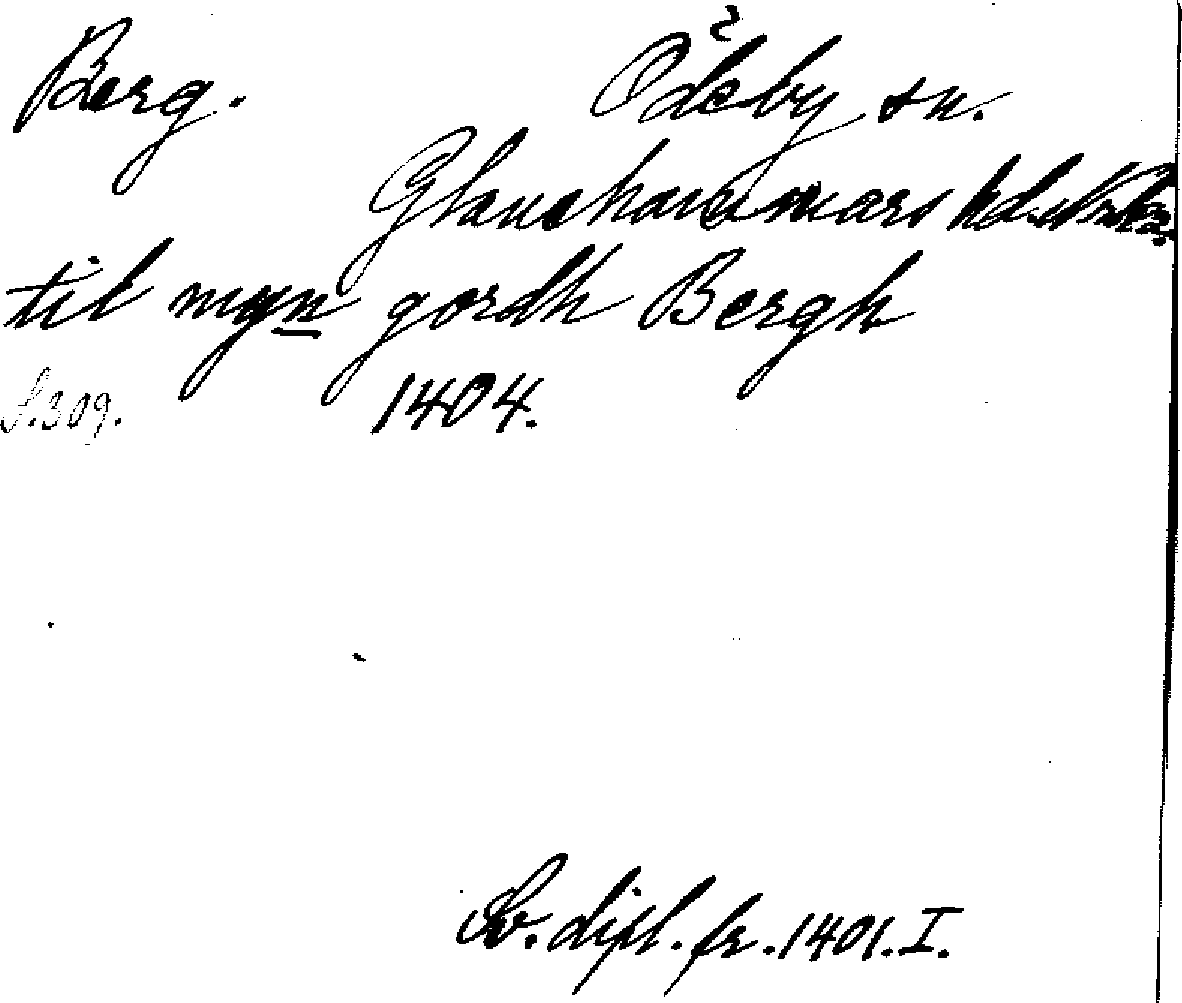 Berg. Ödeby sn.
Glanshammars hd. Nke.
til myn gordh Bergh
S. 309. 1404.
Sv. dipl. fr. 1401. I.